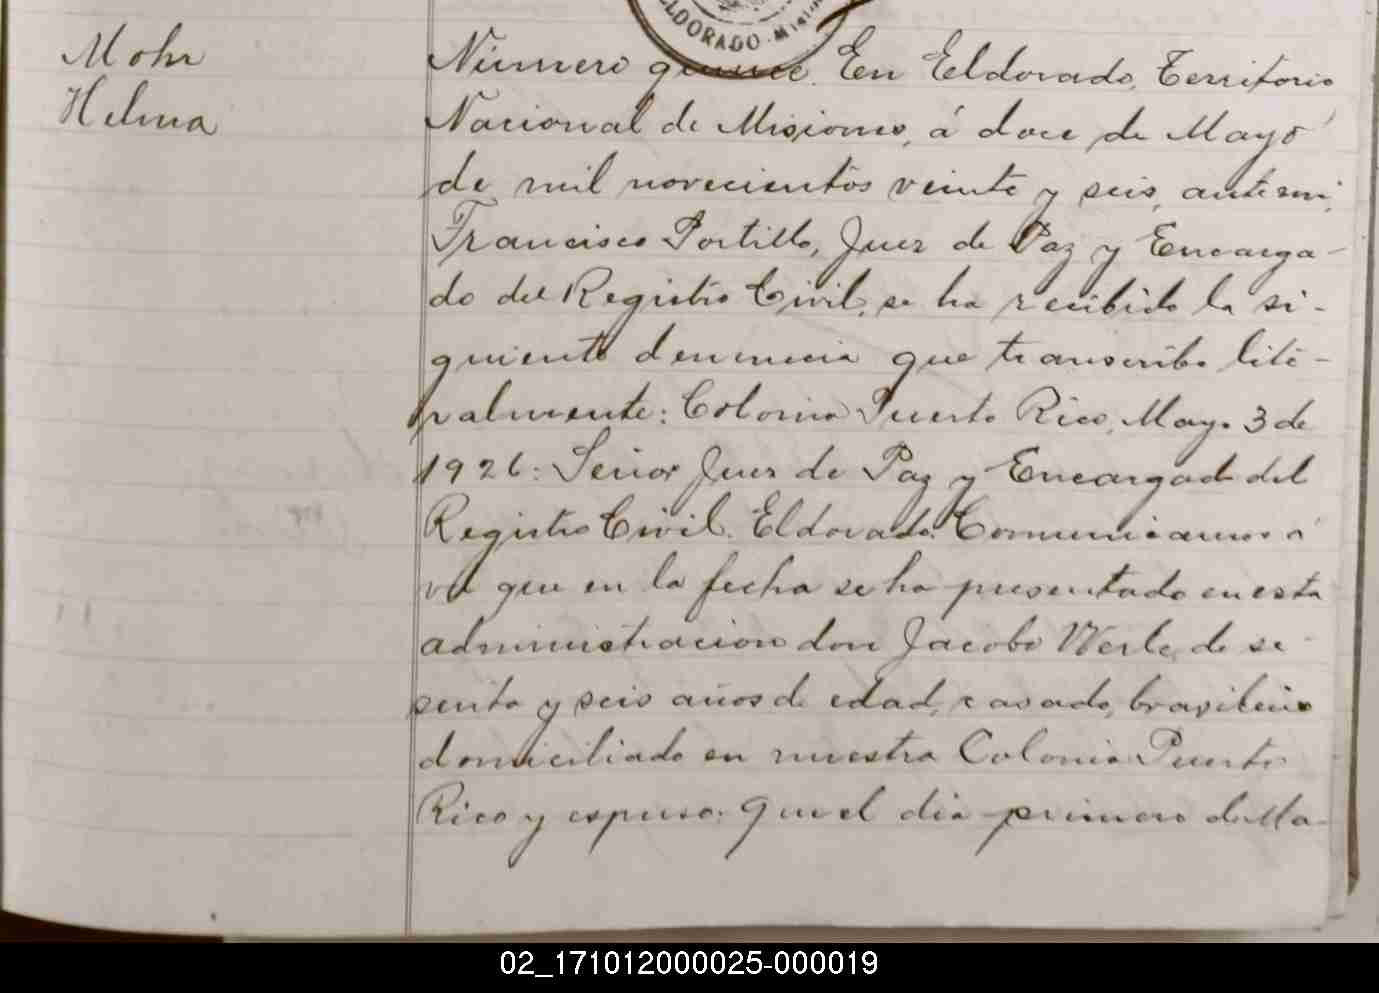 Mohr
Helma
ELDORADO · Misio
Número quince. En Eldorado, Territorio
Nacional de Misiones, á doce de Mayo
de mil novecientos veinte y seis, ante mi,
Francisco Portillo, Juez de Paz y Encarga-
do del Registro Civil, se ha recibido la si-
guiente denuncia que transcribo lite-
ralmente: Colonia Puerto Rico, Mayo 3 de
1926: Señor Juez de Paz y Encargado del
Registro Civil. Eldorado. Comunicamos á
vd que en la fecha se ha presentado en esta
administracion don Jacobo Werle, de se
senta y seis años de edad, casado, brasilero
domiciliado en nuestra Colonia Puerto
Rico y espuso: Que el dia primero de Ma-
02_171012000025-000019